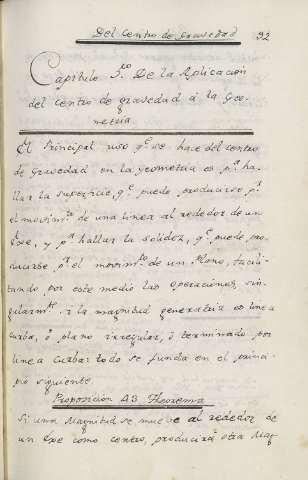 Del Centro de Gravedad 92
Capitulo 5.to De la Aplicacion
del centro de gravedad á la Geo-
metria
El Principal uso q.e se hace del centro
de Gravedad en la Geometria es p.a ha-
llar la superficie, q.e puede producirse p.r
el movim.to de una linea al rededor de un
Exe, y p.a hallar la solidez, q.e puede pro-
ducirse p.r el movim.to de un Plano, facili-
tando por este medio las operaciones, sin-
gularm.te, si la magnitud generatriz es linea
curba, ó plano irregular, ó terminado por
linea Curba: todo se funda en el princi-
pio siguiente
Proposicion 43 Theorema
Si una Magnitud se mueve al rededor de
un Exe como centro, producirá otra Mag-